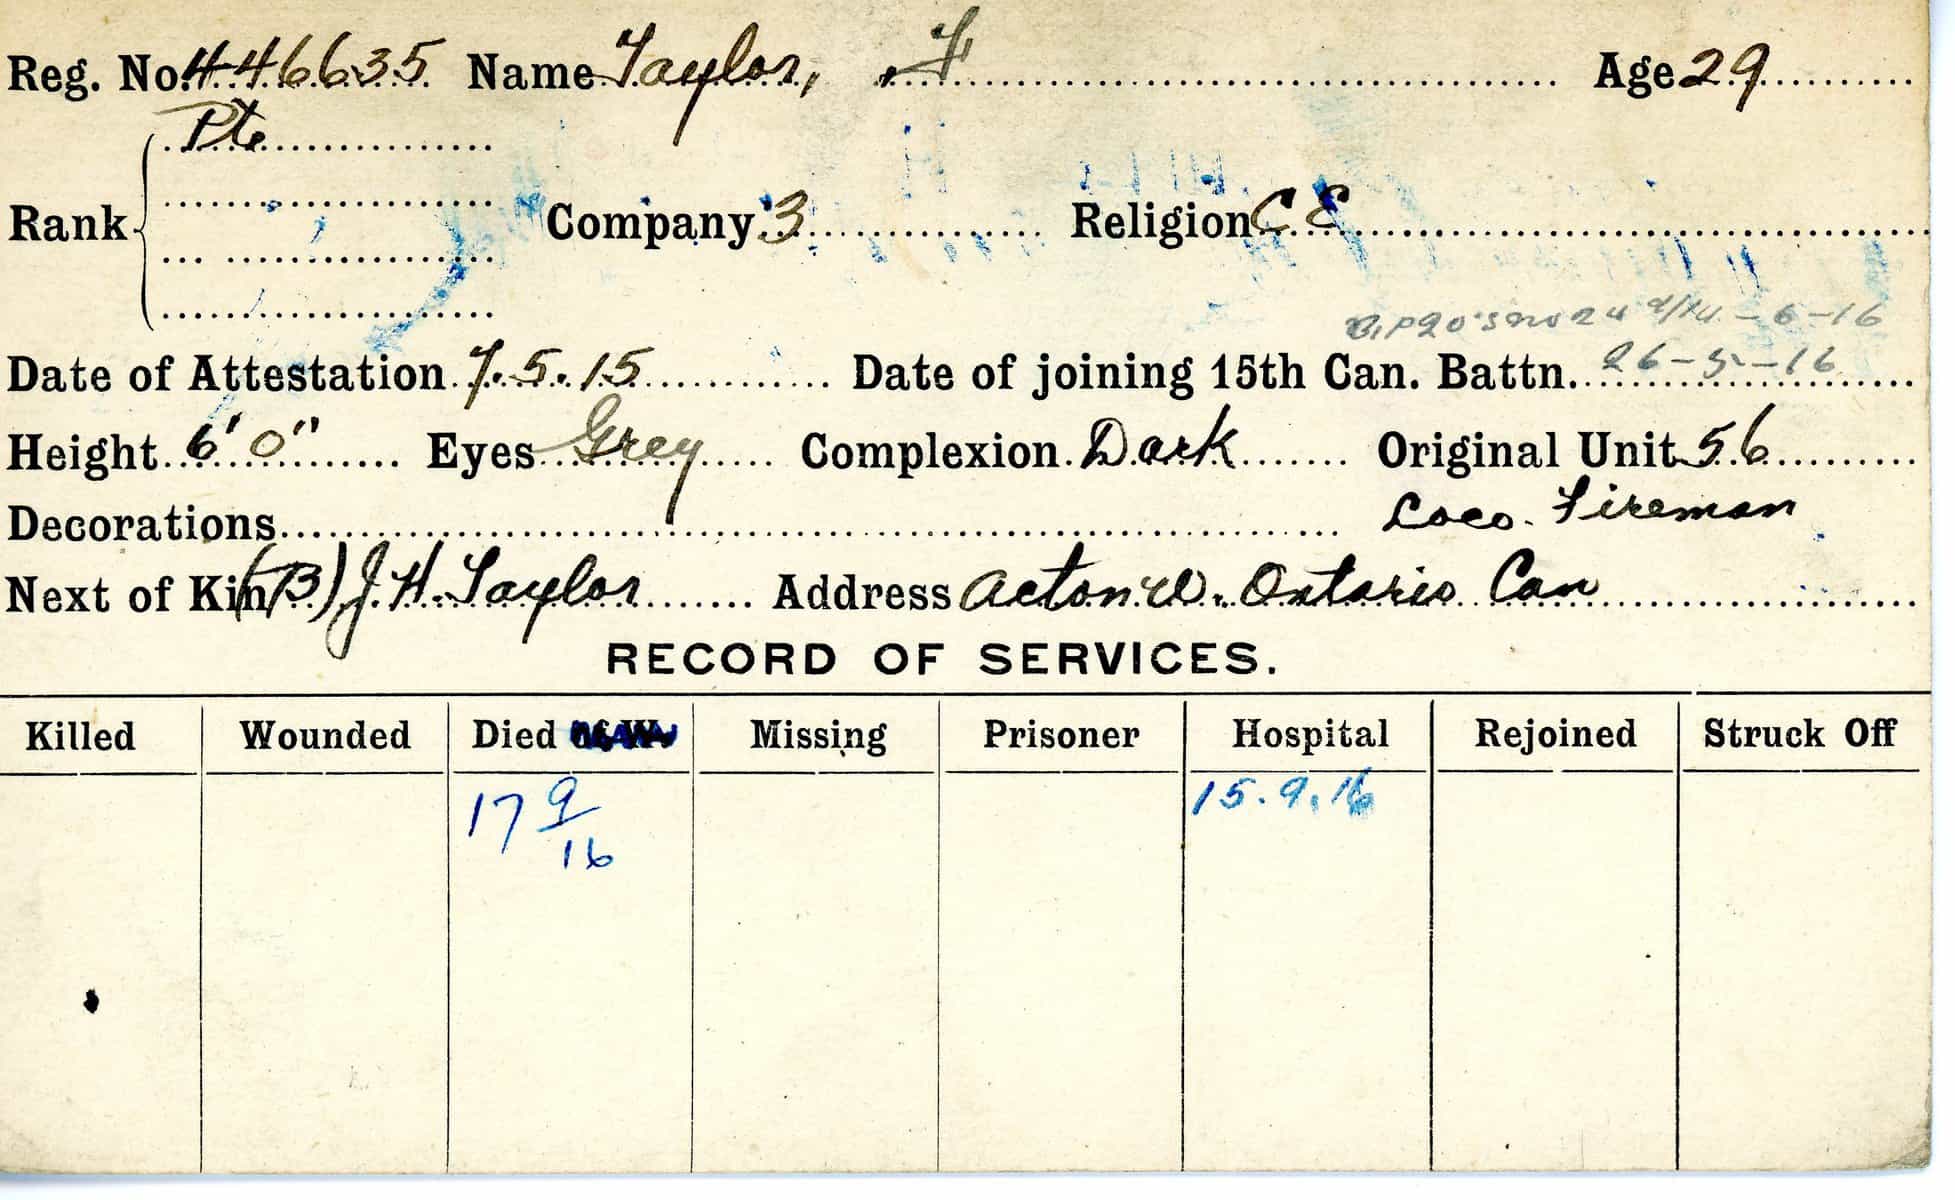 Reg. No. 446635 Name Taylor, F Age 29
Pte
Rank Company 3 Religion C E
Date of Attestation 7.5.15 Date of joining 15th Can. Battn. 26-5-16
Height 6' 0" Eyes Grey Complexion Dark Original Unit 56
Decorations Loco. Fireman
Next of Kin (B) J. H. Taylor Address Acton W. Ontario Can
RECORD OF SERVICES.
Killed Wounded Died of W. Missing Prisoner Hospital Rejoined Struck Off
17 9/16 15.9.16